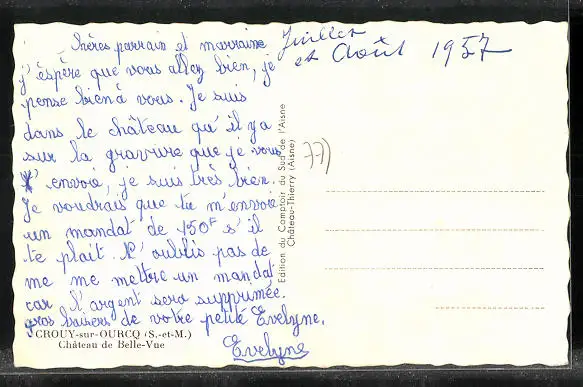 Chères parrain et marraine
j'éspère que vous allez bien, je
pense bien à vous. Je suis
dans le château qu'il y a
sur la gravure que je vous
envoie, je suis très bien.
Je voudrais que tu m'envoie
un mandat de 150F s'il
te plait. N'oublis pas de
me me mettre un mandat
car l'argent sera supprimée.
gros baisers de votre petite Evelyne.
Evelyne
CROUY-sur-OURCQ (S.-et-M.)
Château de Belle-Vue
Edition du Comptoir du Sud de l'Aisne
Château-Thierry (Aisne)
Juillet
et Août 1957
77)